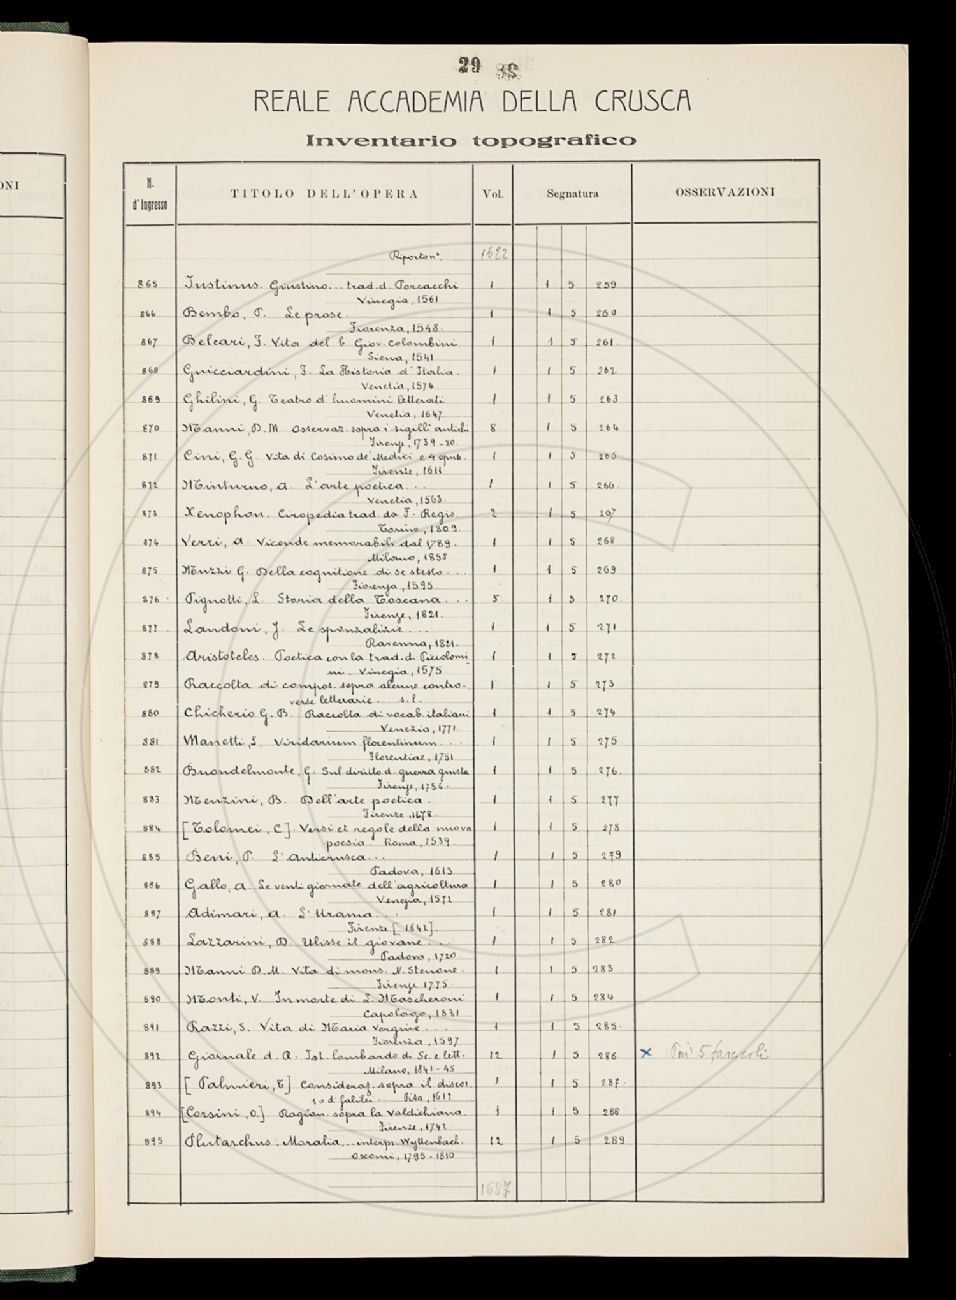 ONI
29
REALE ACCADEMIA DELLA CRUSCA
Inventario topografico
N. d'Ingresso TITOLO DELL'OPERA Vol. Segnatura OSSERVAZIONI
Riporto n°. 1622
865 Iustinus. Giustino... trad. d. Porcacchi 1 1 5 259
Vinegia, 1561
866 Bembo, P. Le prose. 1 1 5 260
Fiorenza, 1548.
867 Belcari, F. Vita del b. Giov. Colombini 1 1 5 261.
Siena, 1541
868 Guicciardini, F. La Historia d'Italia. 1 1 5 262
Venetia, 1574
869 Ghilini, G. Teatro d'huomini letterati 1 1 5 263
Venetia, 1647.
870 Manni, D. M. Osservaz. sopra i sigilli antichi 8 1 5 264
Firenze, 1739-80.
871 Cini, G. G. Vita di Cosimo de' Medici e 4 opusc. 1 1 5 265
Firenze, 1611
872 Minturno, A. L'arte poetica... 1 1 5 266
Venetia, 1563.
873 Xenophon. Ciropedia trad. da F. Regis. 2 1 5 267
Torino, 1809.
874 Verri, A. Vicende memorabili dal 1789. 1 1 5 268
Milano, 1858
875 Muzzi G. Della cognitione di se stesso... 1 1 5 269
Fiorenza, 1595
876 Pignotti, L. Storia della Toscana... 5 1 5 270
Firenze, 1821.
877 Landoni, J. Le sponzalizie... 1 1 5 271
Ravenna, 1821.
878 Aristoteles. Poetica con la trad. d. Piccolomi- 1 1 5 272
ni. Vinegia, 1575
879 Raccolta di compos. sopra alcune contro- 1 1 5 273
verse letterarie. s. l.
880 Chicherio G. B. Raccolta di vocab. italiani 1 1 5 274
Venezia, 1771.
881 Manetti, S. Viridarium florentinum... 1 1 5 275
Florentiae, 1751
882 Buondelmonte, G. Sul diritto d. guerra giusta 1 1 5 276.
Firenze, 1756.
883 Menzini, B. Dell'arte poetica. 1 1 5 277
Firenze, 1678.
884 [Tolomei, C]. Versi et regole della nuova 1 1 5 278
poesia. Roma, 1539.
885 Beni, P. L'anticrusca... 1 1 5 279
Padova, 1613
886 Gallo, A. Le venti giornate dell'agricoltura 1 1 5 280
Venezia, 1572
887 Adimari, A. L'Urania... 1 1 5 281
Firenze [1642].
888 Lazzarini, D. Ulisse il giovane... 1 1 5 282
Padova, 1720.
889 Manni D. M. Vita di mons. N. Stenone. 1 1 5 283
Firenze 1775.
890 Monti, V. In morte di L. Mascheroni 1 1 5 284
Capolago, 1831
891 Razzi, S. Vita di Maria Vergine... 1 1 5 285.
Fiorenza, 1597
892 Giornale d. R. Ist. lombardo di Sc. e lett. 12 1 5 286 x Piu' 5 fascicoli
Milano, 1841-45
893 [Palmieri, T.] Consideraz. sopra il discor- 1 1 5 287.
so d. Galilei. Pisa, 1612
894 [Corsini, O.] Ragion. sopra la Valdichiana. 1 1 5 288
Firenze, 1742.
895 Plutarchus. Moralia... interpr. Wyttenbach. 12 1 5 289
Oxonii, 1795-1810
1687